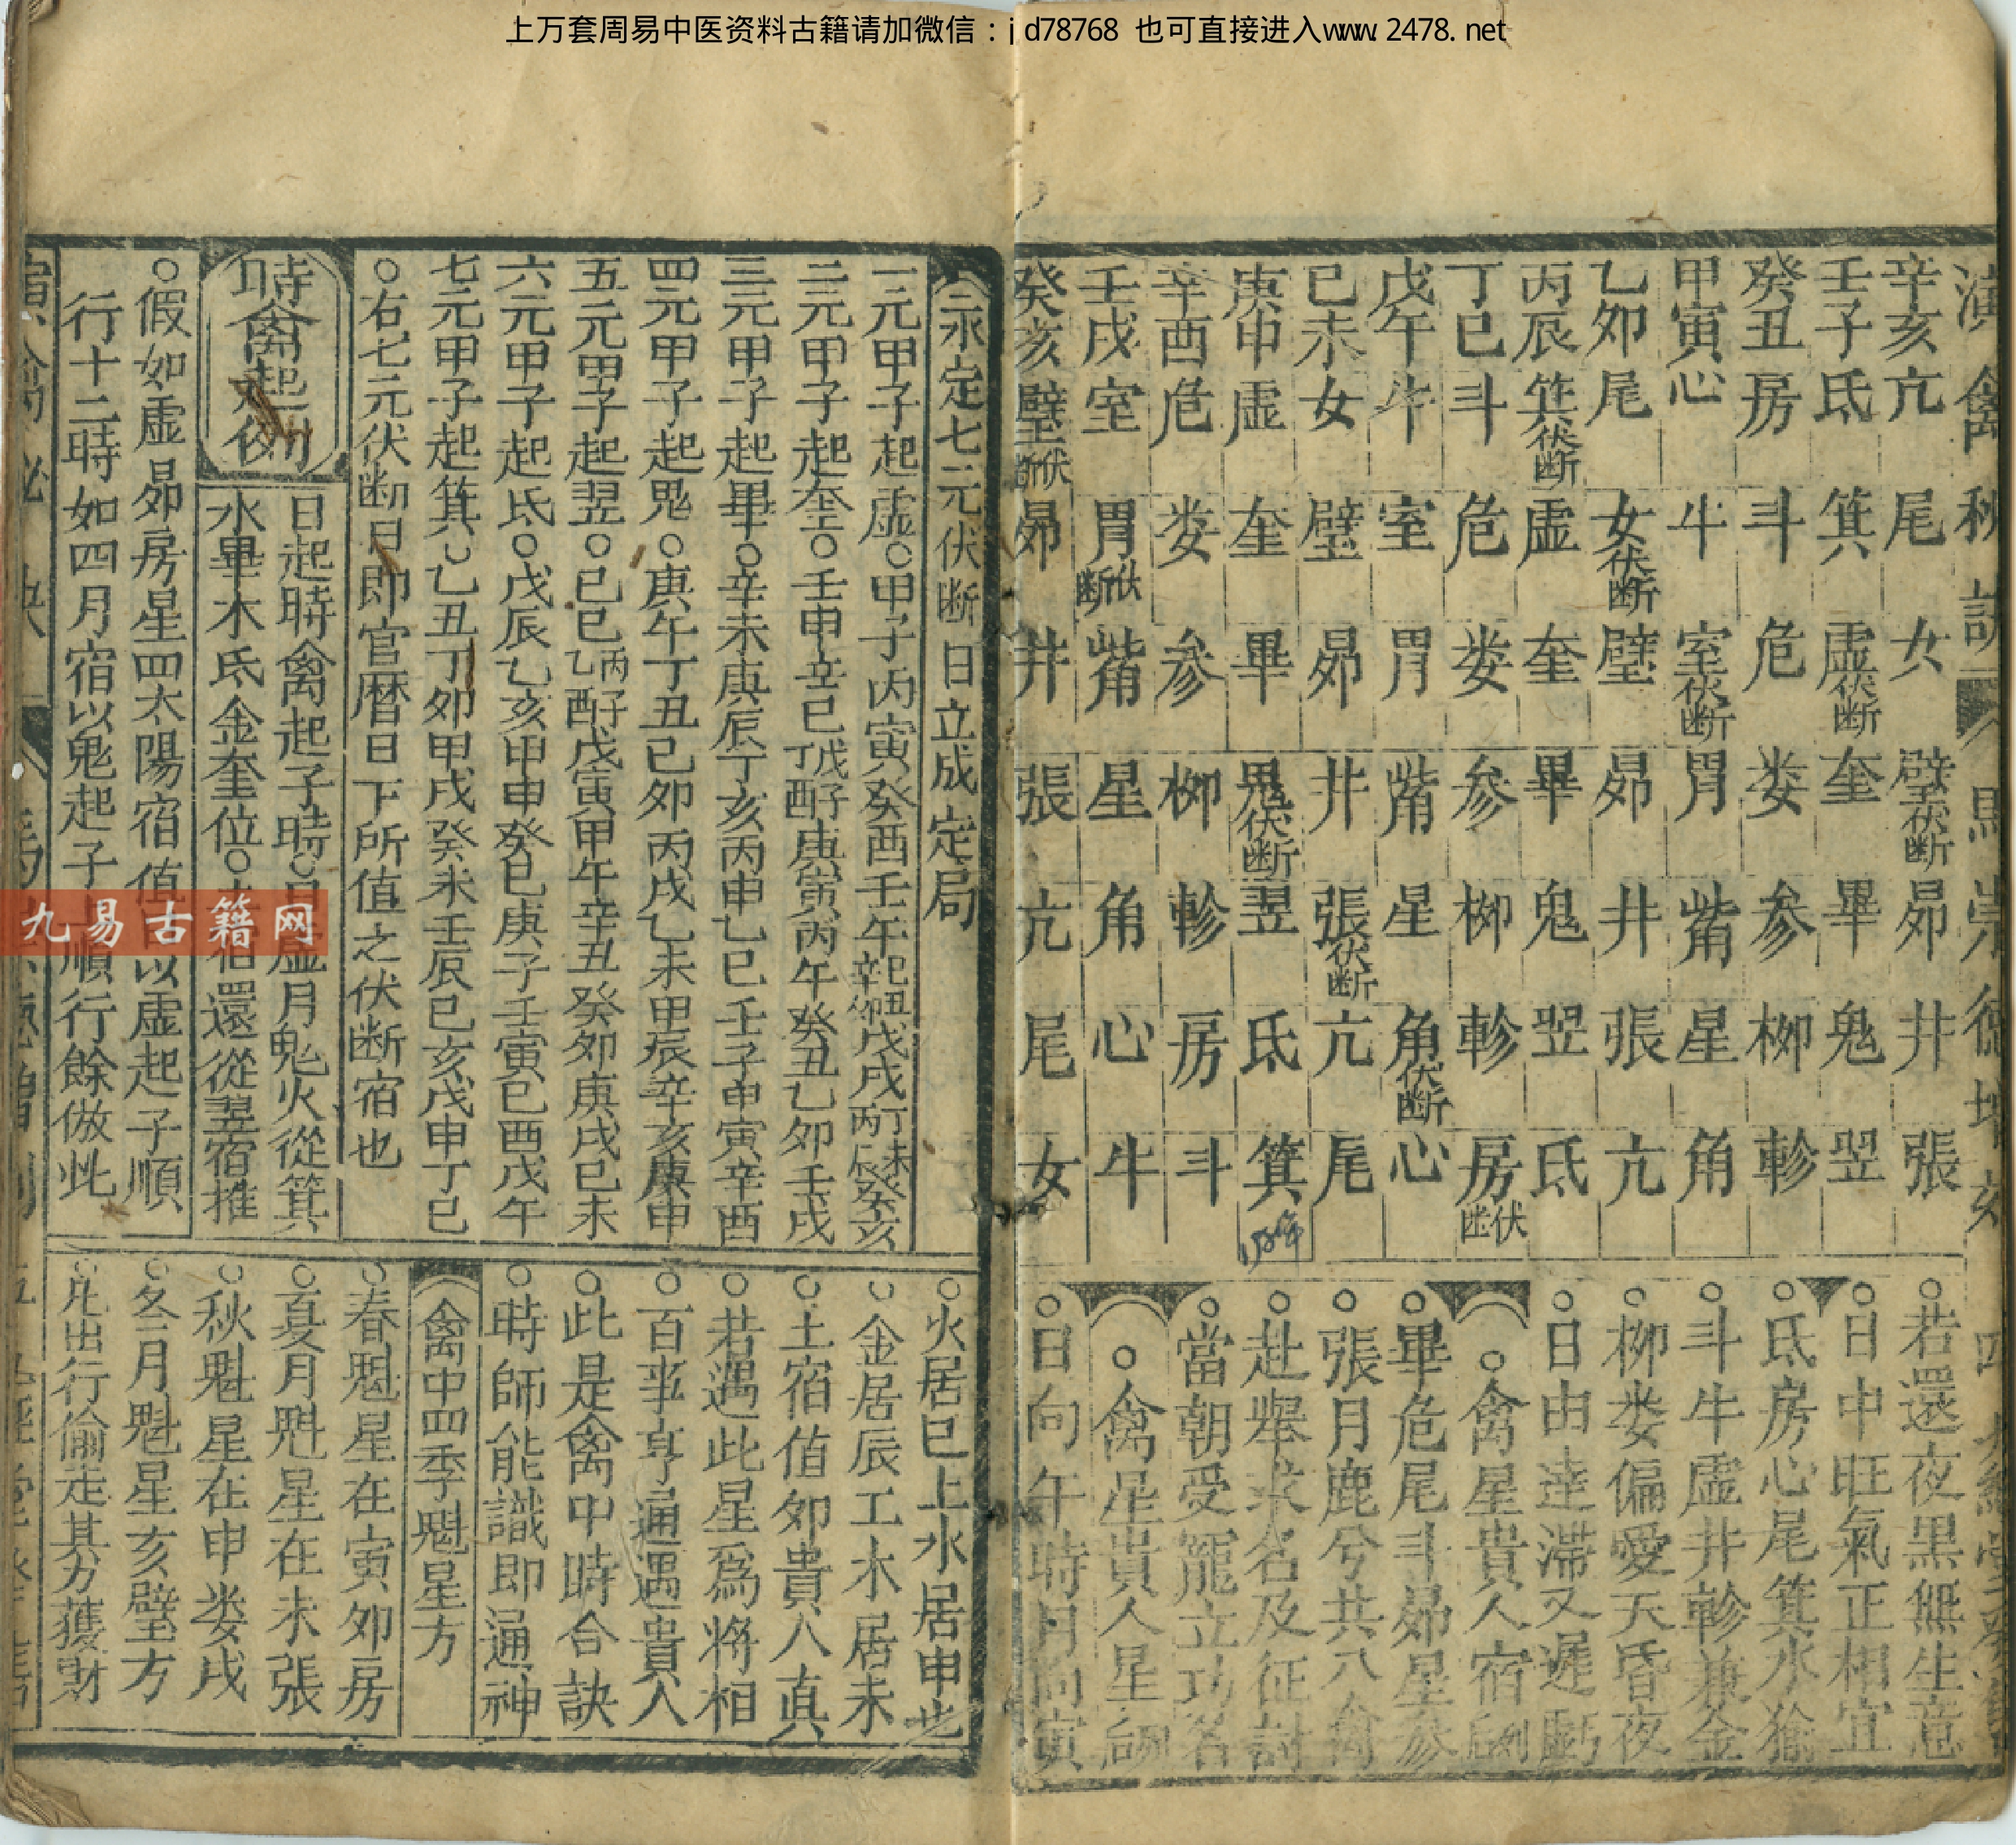 上万套周易中医资料古籍请加微信：jd78768 也可直接进入www.2478.net
辛亥亢 尾 女 壁伏断 昴 井 張
壬子氐 箕 虛伏断 奎 畢 鬼 翌
癸丑房 斗 危 娄 参 柳 軫
甲寅心 牛 室伏断 胃 觜 星 角
乙卯尾 女伏断 壁 昴 井 張 亢
丙辰箕伏断 虛 奎 畢 鬼 翌 氐
丁巳斗 危 娄 参 柳 軫 房伏断
戊午牛 室 胃 觜 星 角伏断 心
巳未女 壁 昴 井 張伏断 亢 尾
庚申虛 奎 畢 鬼伏断 翌 氐 箕
辛酉危 娄 参 柳 軫 房 斗
壬戌室 胃伏断 觜 星 角 心 牛
癸亥壁伏断 昴 井 張 亢 尾 女
○若還夜黒無生意
○日中旺氣正相宜
○氐房心尾箕水猶
○斗牛虛井軫兼金
○柳娄偏愛天昏夜
○日由逹滯又遲虧
○禽星貴人宿
○畢危尾斗昴星参
○張月鹿兮共八禽
○赴舉求名及征討
○當朝受寵立功名
○禽星貴人星
○日向午時月向寅
永定七元伏断日立成定局
一元甲子起虛○甲子丙寅癸酉壬午巳丑辛卯戊戌丁未丙辰癸亥
二元甲子起奎○壬申辛巳戊子丁酉庚寅丙午癸丑乙卯壬戌
三元甲子起畢○辛未庚辰丁亥丙申乙巳壬子甲寅辛酉
四元甲子起鬼○庚午丁丑巳卯丙戌乙未甲辰辛亥庚申
五元甲子起翌○巳巳丙子乙酉戊寅甲午辛丑癸卯庚戌巳未
六元甲子起氐○戊辰乙亥甲申癸巳庚子壬寅巳酉戊午
七元甲子起箕○乙丑丁卯甲戌癸未壬辰巳亥戊申丁巳
○右七元伏断日即官曆日下所值之伏断宿也
時禽起例
日起時禽起子時○日虛月鬼火從箕
水畢木氐金奎位○宿還從翌宿推
○假如虛昴房星四太陽宿值日以虛起子順
行十二時如四月宿以鬼起子上順行餘倣此
○火居巳上水居申
○金居辰工木居未
○土宿值卯貴人真
○若遇此星爲將相
○百事亨通遇貴人
○此是禽中時合訣
○時師能識即通神
禽中四季魁星方
○春魁星在寅卯房
○夏月魁星在未張
○秋魁星在申娄戌
○冬月魁星亥壁方
○此出行偷走其方獲財
九易古籍网